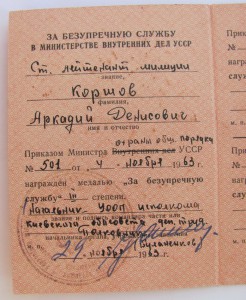 ЗА БЕЗУПРЕЧНУЮ СЛУЖБУ
В МИНИСТЕРСТВЕ ВНУТРЕННИХ ДЕЛ УССР
Ст. лейтенант милиции
звание,
Коршов
фамилия,
Аркадий Денисович
имя и отчество
охраны общ. порядка
Приказом Министра Внутренних дел УССР
№ 501 от 4 ноября 1963 г.
награжден медалью "За безупречную
службу" III степени.
Начальник УООП исполкома
звание и подпись командира части или
Киевского облсовета деп. труд.
начальника органа,
Полковник
м. п. 29 ноября 1963 г.